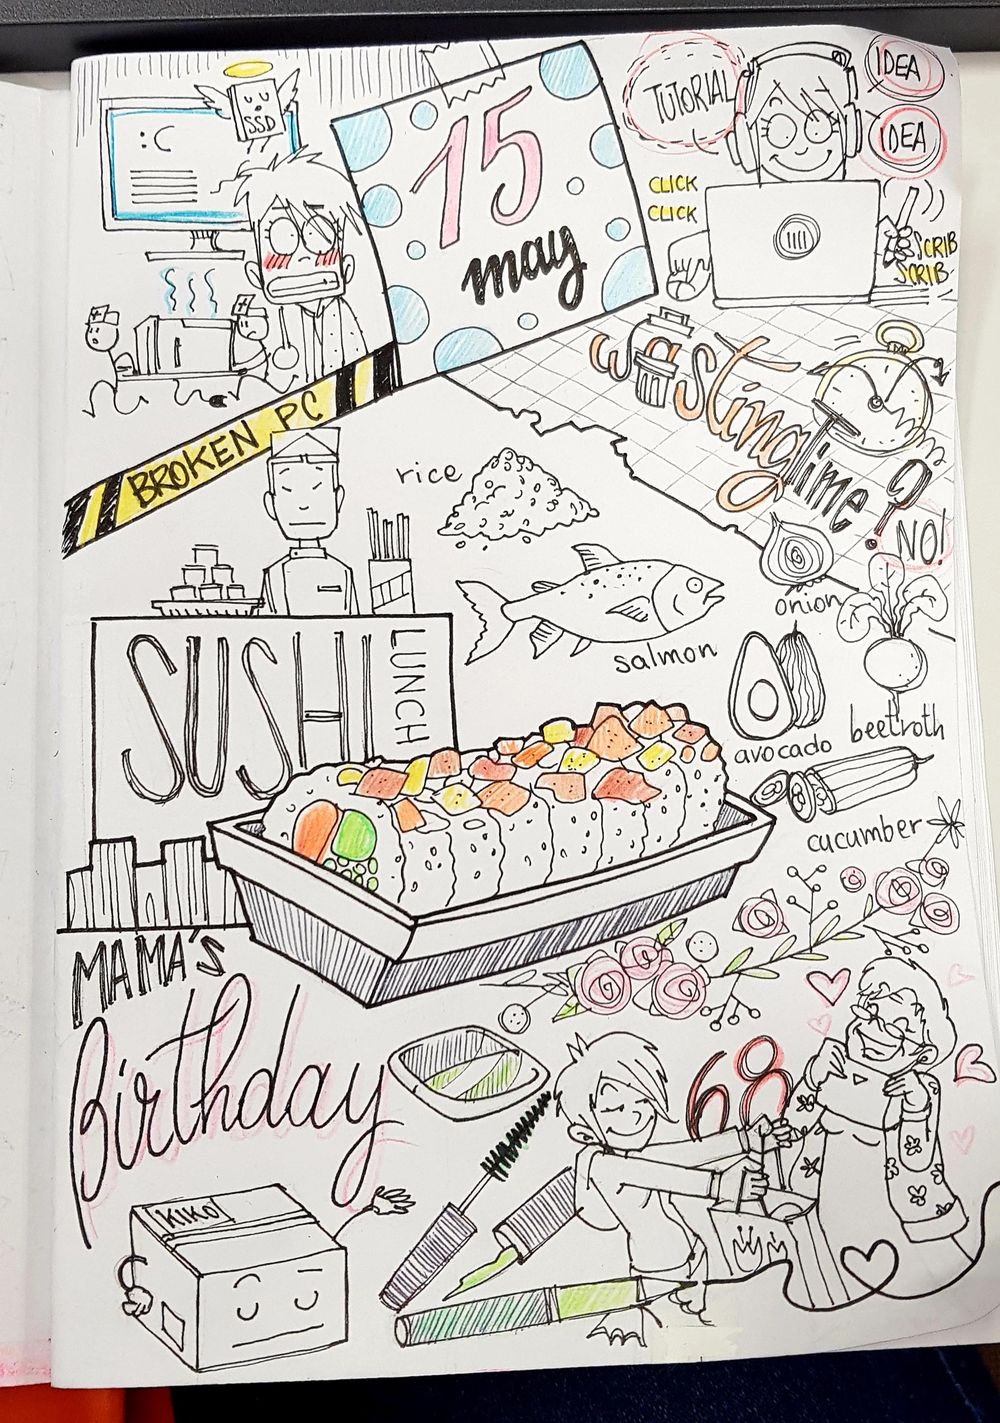 :C
SSD
15
may
TUTORIAL
IDEA
IDEA
CLICK
CLICK
SCRIB
SCRIB
BROKEN PC
wasting
time?
NO!
rice
salmon
onion
avocado
beetroth
cucumber
SUSHI
LUNCH
MAMA'S
Birthday
68
KIKO